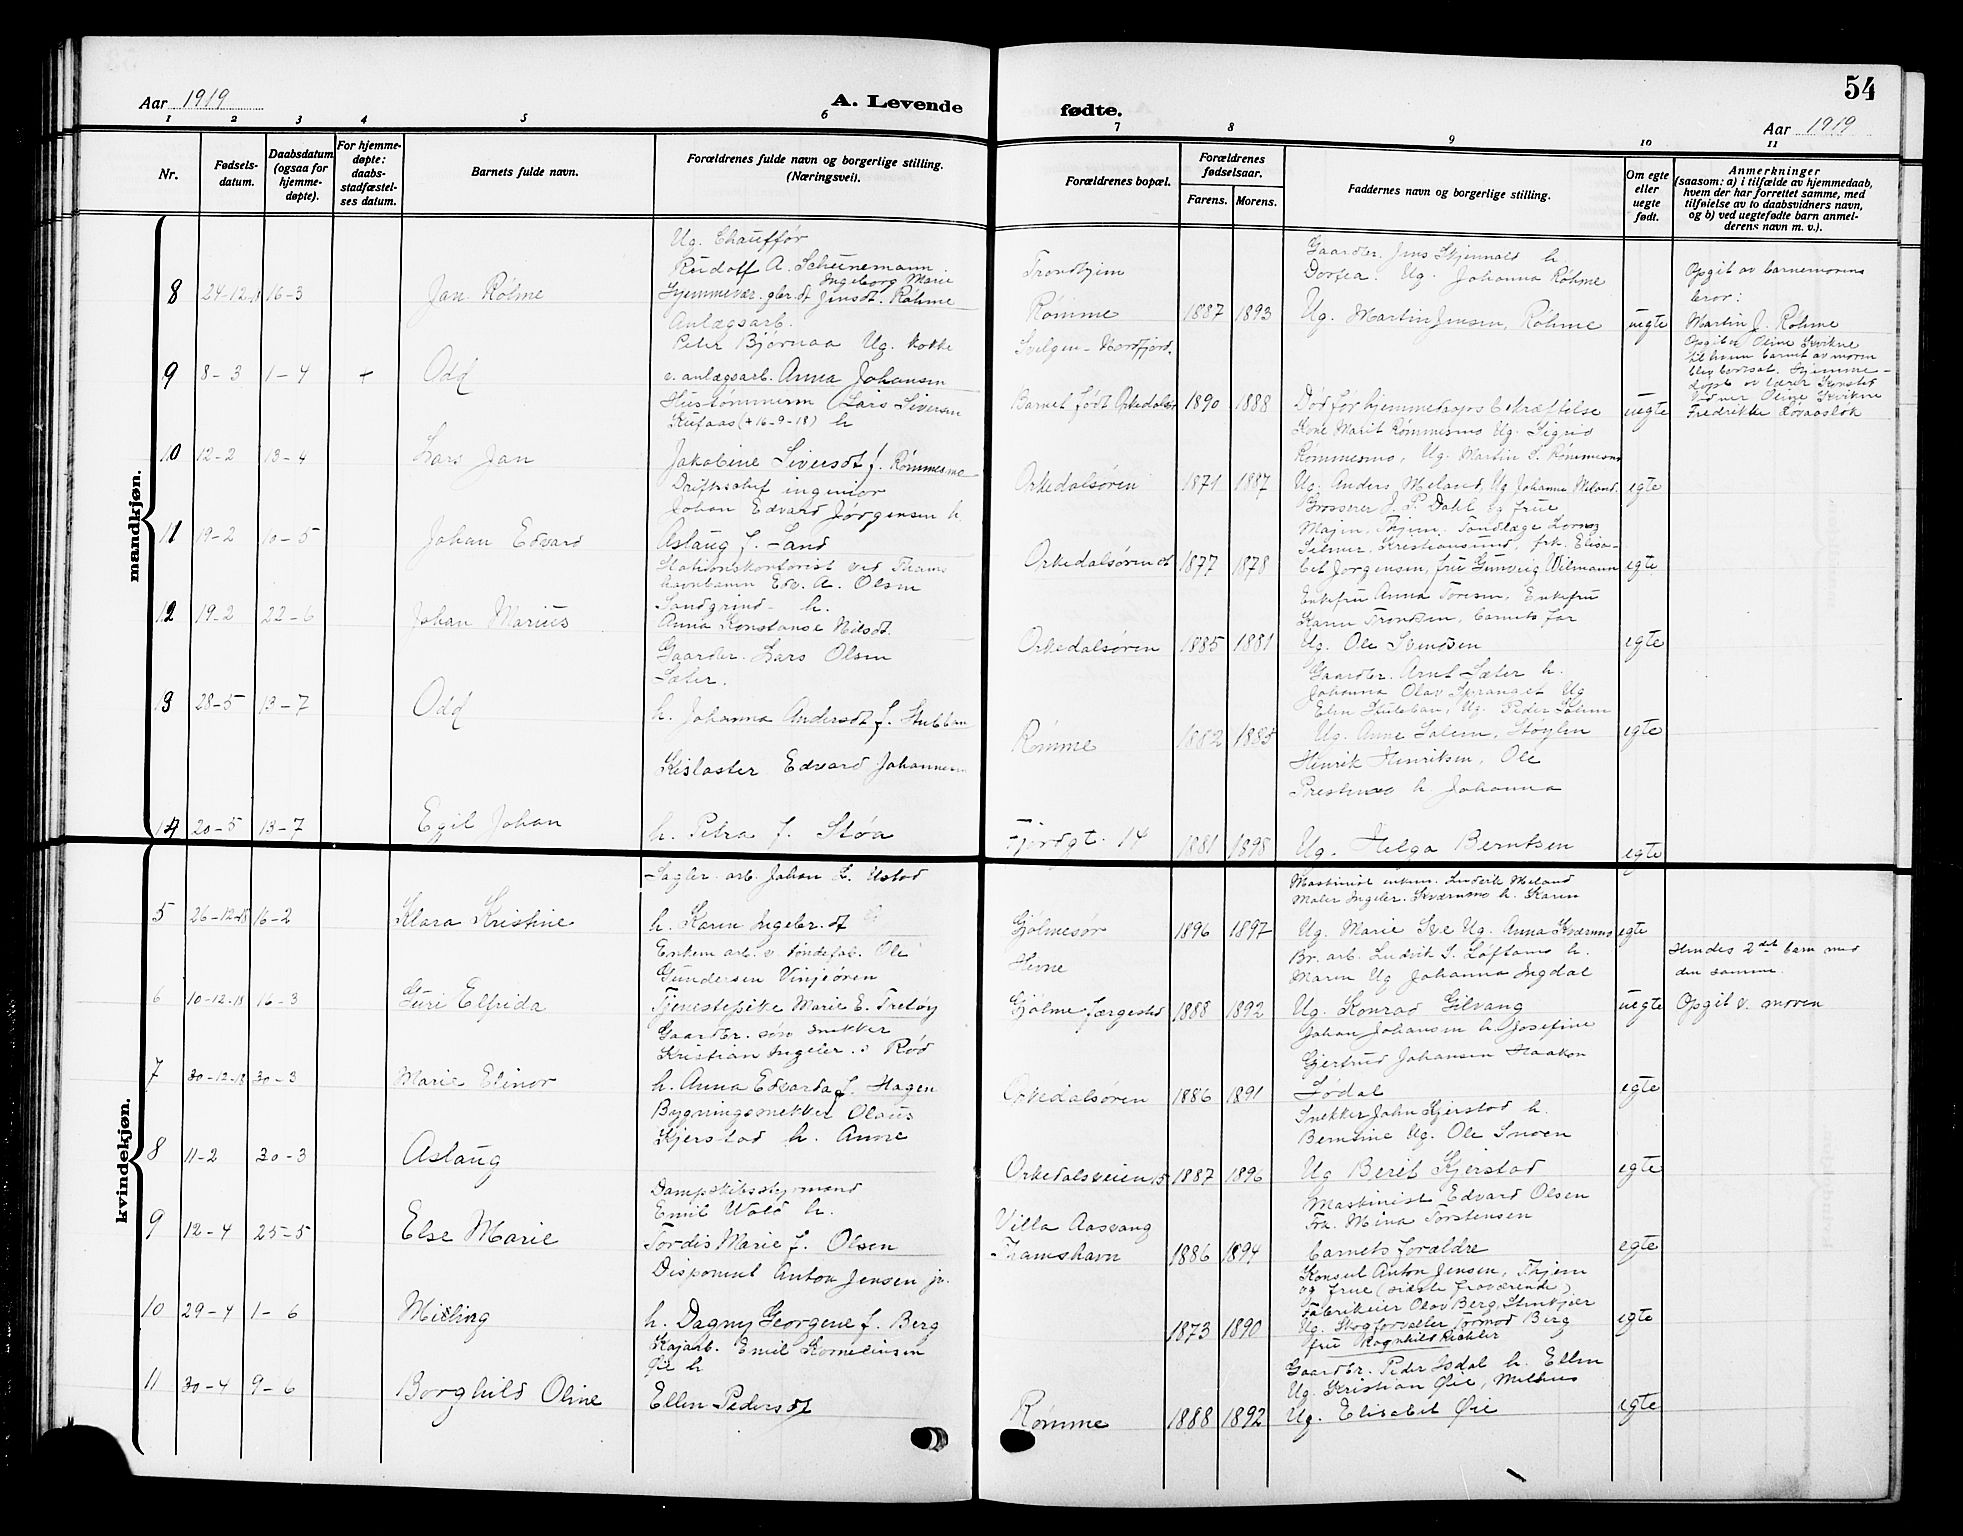 54
Aar 1919
A. Levende
fødte.
Aar 1919
1 2 3 4 5 6 7 8 9 10 11
Nr.
Fødsels-
datum.
Daabsdatum
(ogsaa for
hjemme-
døpte).
For hjemme-
døpte:
daabs-
stadfæstel-
ses datum.
Barnets fulde navn.
Forældrenes fulde navn og borgerlige stilling.
(Næringsvei).
Forældrenes bopæl.
Forældrenes
fødselsaar.
Farens. Morens.
Faddernes navn og borgerlige stilling.
Om egte
eller
uegte
født.
Anmerkninger
(saasom: a) i tilfælde av hjemmedaab,
hvem der har forrettet samme, med
tilføielse av to daabsvidners navn,
og b) ved uegtefødte barn anmel-
derens navn m. v.).
mandkjøn.
8 24-12-18 16-3 Jan Röhme
Ug. Chauffør
Rudolf A. Schünemann
Ingeborg Marie
Hjemmevær. gbr.dt Jensdt. Röhme
Trondhjem
Rømme 1887 1893
Gaardbr. Jens Skjenald h.
Dortea. Ug. Johanna Röhme
Ug. Martin Jensen, Röhme
uegte
Opgit av barnemorens
bror:
Martin J. Röhme
9 8-3 1-4 + Odd
Anlægsarb.
Peter Bjørnaa Ug. kokke
v. anlægsarb. Anna Johansen
Svelgen - Nordfjord.
Barnet født Orkedalsør 1890 1888
Død før hjemmedaapes bekræftelse
uegte
Opgit av Oline Kvikne
til hvem barnet av moren
blev bortsat. Hjemme-
døpt av lærer
Vidner Oline Kvikne
Fredrikke
10 12-2 13-4 Lars Jan
Hustømmerm. Lars Siversen
Kufaas (+ 16-9-18) h
Jakobine Siversdt f. Rømmesmo
Orkedalsøren 1871 1887
Kone Marit Rømmesmo Ug. Sigrid
Rømmesmo, Ug. Martin S. Rømmesmo
Ug. Anders Meland, Ug Johanna Meland.
egte
11 19-2 10-5 Johan Edvard
Driftschef ingeniør
Johan Edvard Jørgensen h.
Aslaug f. Sand
Orkedalsøren 1877 1878
Grosserer J. P. Dahl og frue
Majen, Thjem. Tandlæge
Silmer, Kristiansund, frk. Elisa-
bet Jørgensen, frue Gunveig Wilmann
egte
12 19-2 22-6 Johan Marius
Stationskontorist ved Thams-
havnbanen Edv. A. Olsen
Sandgrind- h.
Anna Konstanse Nilsdt.
Orkedalsøren 1885 1881
Enkefru Anna Toresen, Enkefru
Karen Trondsen, barnets far
Ug. Ole Svendsen
egte
13 28-5 13-7 Odd
Gaardbr. Lars Olsen
Sæter.
h. Johanna Andersdt f. Stubban
Rømme 1882 1885
Gaardbr. Arnt Sæter h.
Johanna Olav Sprauget Ug
Elen Stubban, Ug. Peder Solem
Ug. Anne Solem, Støylen
egte
14 20-5 13-7 Egil Johan
Kislaster Edvard Johannesen
h. Petra f. Støa
Fjordgt. 14 1881 1898
Henrik Henriksen, Ole
Prestmo h. Johanna
Ug. Helga Berntsen
egte
kvindekjøn.
5 26-12-18 16-2 Klara Kristine
Sagbr. arb. Johan L. Ustad
h. Karen Ingebr.dt
Gjølmesør 1896 1897
Maskinist enkem. Ludvik Meland
Maler Ingebr. Kværnmo h. Karen
Ug. Marie Ug. Anna Kværnmo
egte
6 10-12-18 16-3 Guri Elfrida
Enkem. arb. v. tøndefab. Ole
Gundersen Vinjeøren
Tjenestepike Marie E. Tretøy
Hevne
Gjølme færgested 1888 1892
Br. arb. Ludvik S. Løftamo h.
Maren Ug Johanna Ingdal
Ug. Konrad Gilvang
uegte
Hendes 2det barn med
den samme.
Opgit v. moren
7 30-12-18 30-3 Marie Elinor
Gaardbr. søn snekker
Kristian Ingebr. s Rød
h. Anna Edvarda f. Hagen
Orkedalsøren 1886 1891
Johan Johansen h. Josefine
Gjertrud Johansen Haakon
Lødal
egte
8 11-2 30-3 Aslaug
Bygningssnekker Olaus
Kjerstad h. Anne
Orkedalsveien 15 1887 1896
Snekker John Kjerstad h.
Berntine Ug. Ole Snoen
Ug Beret Kjerstad
egte
9 12-4 25-5 Else Marie
Dampskibsstyrmand
Emil Wold h.
Tordis Marie f. Olsen
Villa Aasvang
Thamshavn 1886 1894
Maskinist Edvard Olsen
Frk. Mina Torstensen
barnets forældre
egte
10 29-4 1-6 Meiling
Disponent Anton Jensen jr.
h. Dagny Georgene f. Berg
1873 1890
Konsul Anton Jensen, Thjem
og frue (sidste fraværende)
Fabrikeier Olav Berg, Stenkjer
Ug. Skogforvalter Tormod Berg
fru Ragnhild Richter
egte
11 30-4 9-6 Borghild Oline
Kajarb. Emil Korneliusen
Øie h
Ellen Pedersdt
Rømme 1888 1892
Gaardbr. Peder Isdal h. Ellen
Ug. Kristian Øie, Melhus
Ug. Elisabet Øie
egte